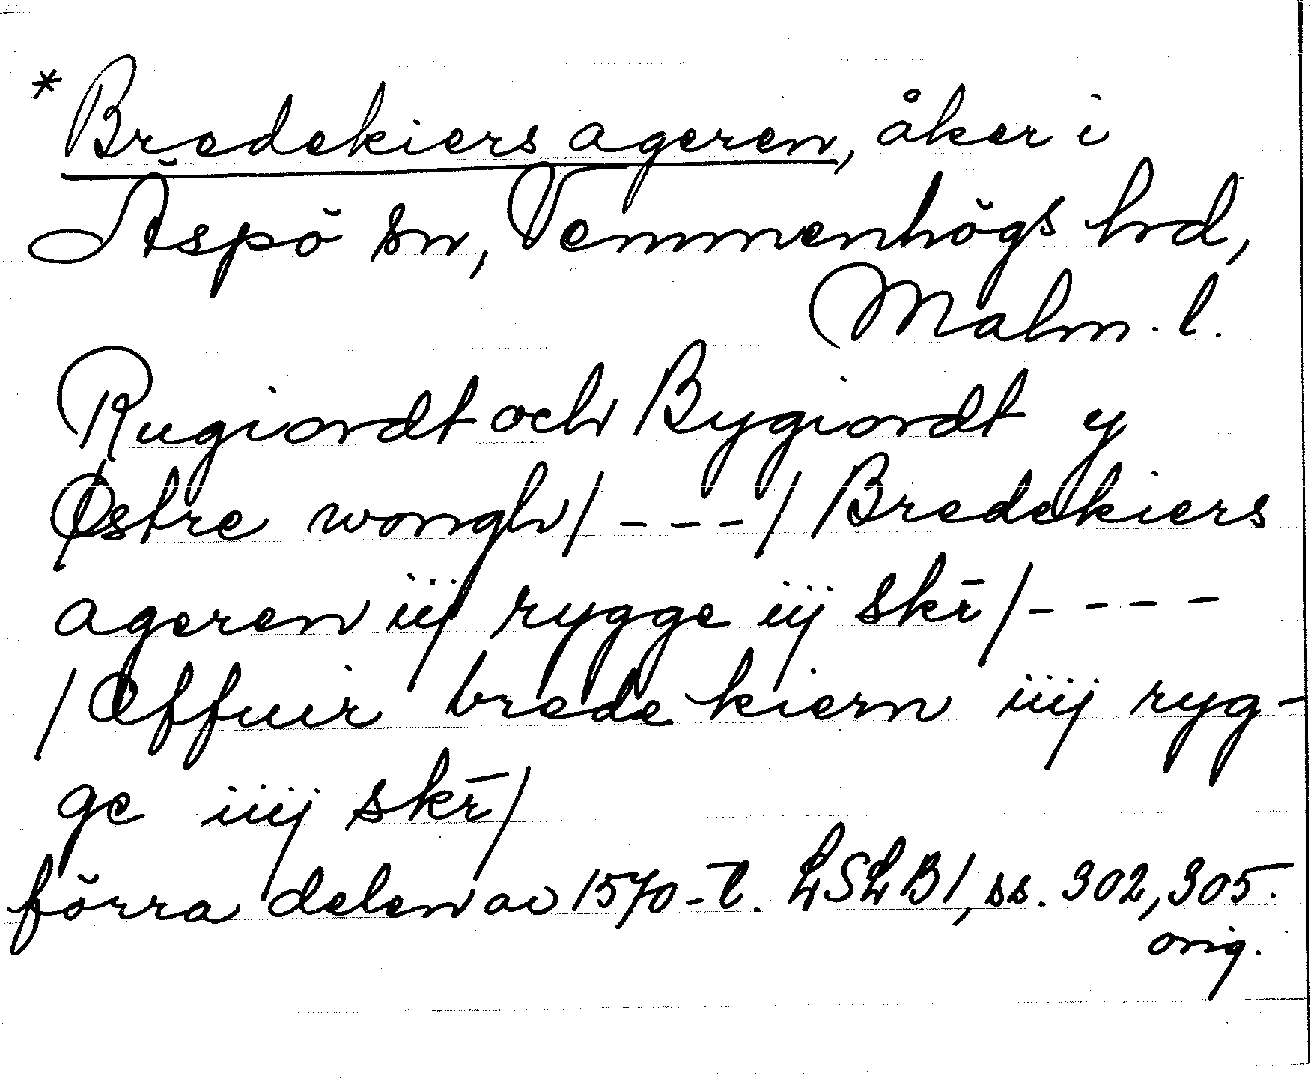 * Bredekiers ageren, åker i
Äspö sn, Vemmenhögs hrd,
Malm. l.
Rugiordt och Bygiordt y
Østre wongh/ - - - / Bredekiers
ageren iij rygge iij skr̄ / - - - -
/ Offuir brede kiern iiij ryg-
ge iiij skr̄ /
förra delen av 1570-t. LSLB 1, ss. 302, 305.
orig.